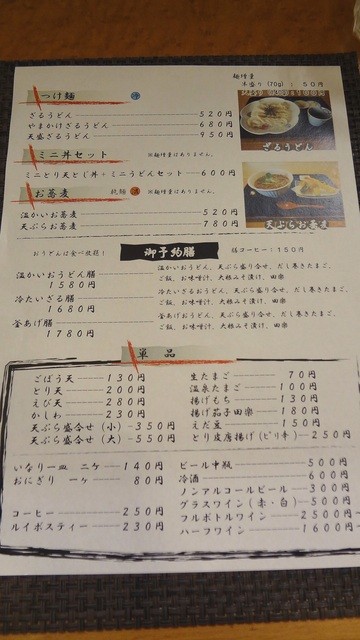 麺増量
半盛り(70g):50円
つけ麺 冷
ざるうどん 520円
やまかけざるうどん 680円
天盛ざるうどん 950円
ざるうどん
ミニ丼セット ※麺増量はありません。
ミニとり天とじ丼+ミニうどんセット 600円
お蕎麦 ※麺増量はありません。
温かいお蕎麦 520円
天ぷらお蕎麦 780円
天ぷらお蕎麦
おうどんは食べ放題!
御予約膳
膳コーヒー:150円
温かいおうどん膳
1580円
温かいおうどん、天ぷら盛り合せ、だし巻きたまご、
ご飯、お味噌汁、大根みそ漬け、田楽
冷たいざる膳
1680円
冷たいざるおうどん、天ぷら盛り合せ、だし巻きたまご、
ご飯、お味噌汁、大根みそ漬け、田楽
釜あげ膳
1780円
釜あげおうどん、天ぷら盛り合せ、だし巻きたまご、
ご飯、お味噌汁、大根みそ漬け、田楽
単品
ごぼう天 130円
とり天 200円
えび天 280円
かしわ 230円
天ぷら盛合せ(小) 350円
天ぷら盛合せ(大) 550円
生たまご 70円
温泉たまご 100円
揚げもち 130円
揚げ茄子田楽 180円
えだ豆 150円
とり皮唐揚げ(ピリ辛) 250円
いなり一皿 二ケ 140円
おにぎり 一ケ 80円
コーヒー 250円
ルイボスティー 230円
ビール中瓶 500円
冷酒 600円
ノンアルコールビール 300円
グラスワイン(赤・白) 500円
フルボトルワイン 2500円
ハーフワイン 1600円